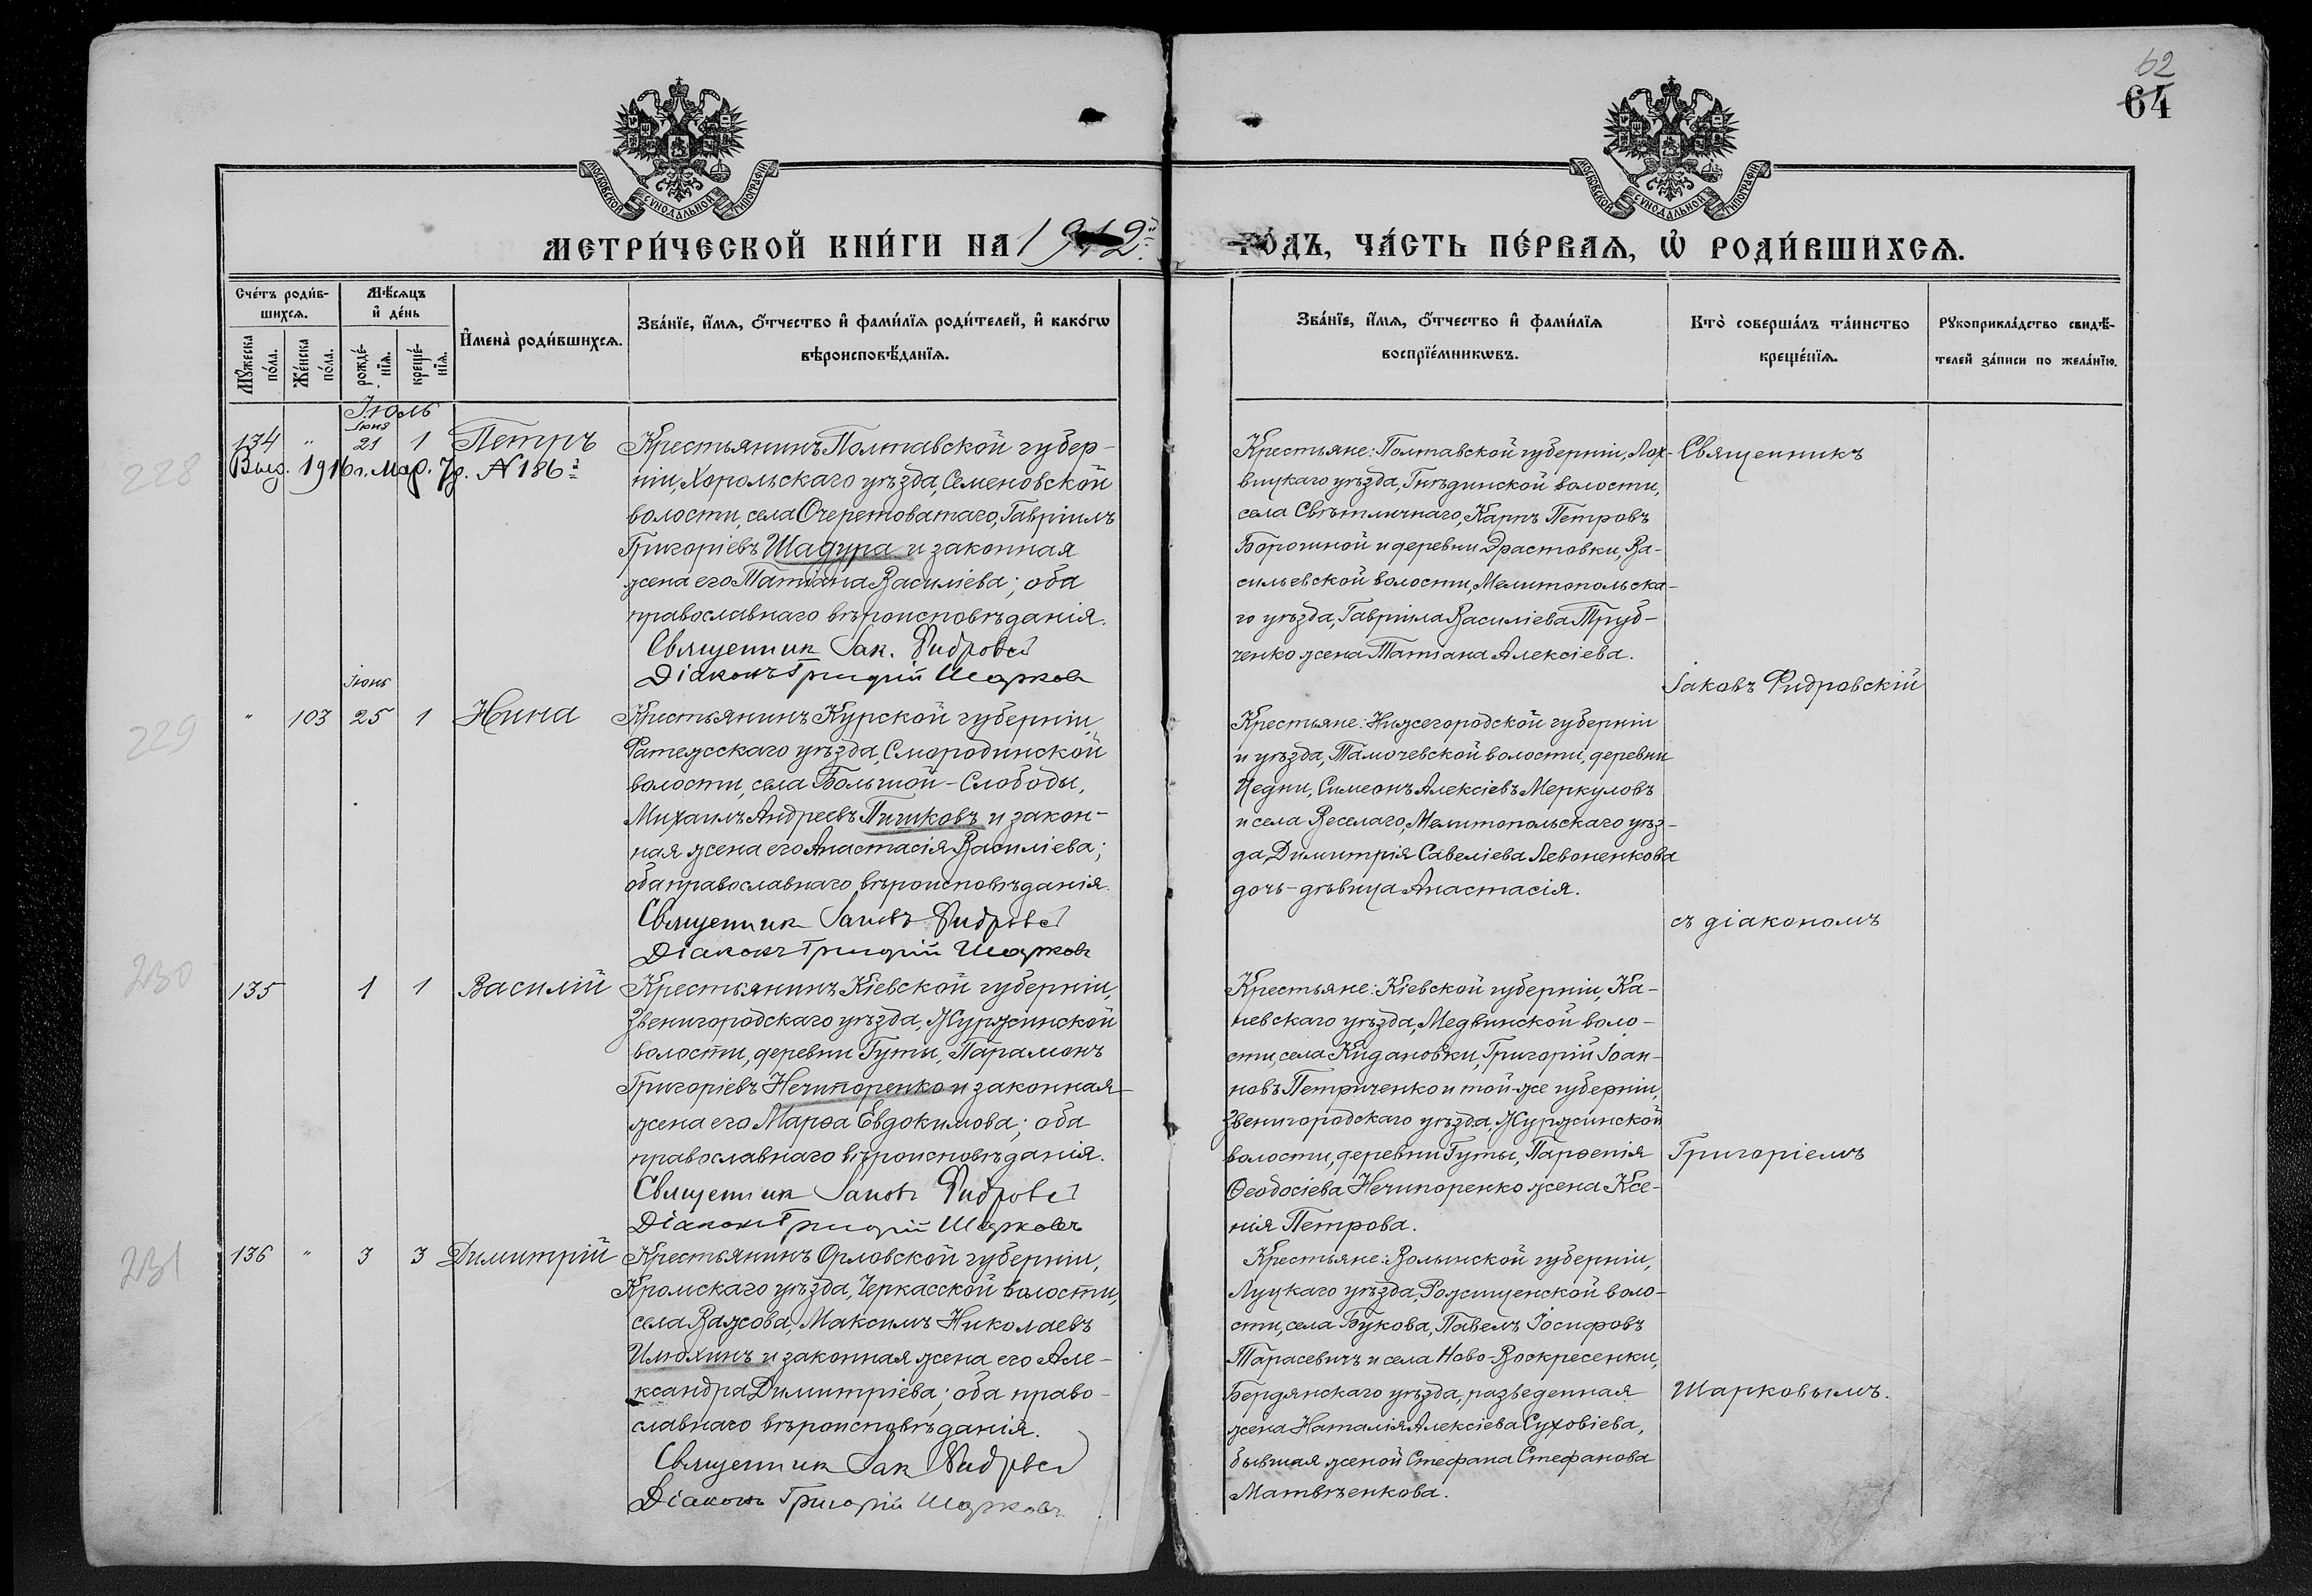 62
64
МОСКОВСКОЙ СѴНОДАЛЬНОЙ ТИПОГРАФІИ
МОСКОВСКОЙ СѴНОДАЛЬНОЙ ТИПОГРАФІИ
МЕТРИ́ЧЕСКОЙ КНИ́ГИ НА 1912й
ГО́ДЪ, ЧА́СТЬ ПЕ́РВАЯ, Ѡ҆ РОДИ́ВШИХСЯ.
Сче́тъ роди́в-
шихся.
Мѣ́сяцъ
и҆ де́нь
Мꙋ́жеска
по́ла.
Же́нска
по́ла.
рожде́-
нїя.
креще́-
нїя.
И҆мена̀ роди́вшихся.
Зва́нїе, и҆́мя, ѻ҆́тчество и҆ фами́лїя роди́телей, и҆ како́гѡ
вѣроисповѣ́данїя.
Зва́нїе, и҆́мя, ѻ҆́тчество и҆ фами́лїя
воспрїе́мникѡвъ.
Кто̀ соверша́лъ та́инство
креще́нїя.
Рꙋкоприкла́дство свидѣ́-
телей за́писи по жела́нїю.
Іюль
Іюня
228
134 " 21 1 Петръ
Выд. 1916 г. Мар. 7 д. № 186й
Крестьянинъ Полтавской губер-
ніи, Хорольскаго уѣзда, Семеновской
волости, села Очеретоватаго, Гавріилъ
Григоріевъ Шадура и законная
жена его Татіана Василіева; оба
православнаго вѣроисповѣданія.
Священник Іак. Фидровск
Діаконъ Григорій Шарков
Крестьяне: Полтавской губерніи, Лох-
вицкаго уѣзда, Гнѣдинской волости,
села Свѣтличнаго, Карпъ Петровъ
Бороиной и деревни Эрастовки, Ва-
сильевской волости, Мелитопольска-
го уѣзда, Гавріила Василіева Труб-
ченко жена Татіана Алексіева.
Священникъ
Іаковъ Фидровскій
229
Іюнь
" 103 25 1 Нина
Крестьянинъ Курской губерніи,
Фатежскаго уѣзда, Смородинской
волости, села Большой-Слободы,
Михаилъ Андреевъ Пичиковъ и закон-
ная жена его Анастасія Василіева;
оба православнаго вѣроисповѣданія.
Священник Іаковъ Фидровск
Діаконъ Григорій Шарковъ
Крестьяне: Нижегородской губерніи
и уѣзда, Тамочевской волости, деревни
Цедни, Симеонъ Алексіевъ Меркуловъ
и села Веселаго, Мелитопольскаго уѣз-
да, Димитрія Савеліева Левоненкова
дочь-дѣвица Анастасія.
съ діакономъ
230
135 1 1 Василій
Крестьянинъ Кіевской губерніи,
Звенигородскаго уѣзда, Журжинской
волости, деревни Гуты, Парамонъ
Григоріевъ Нечипоренко и законная
жена его Марѳа Евдокимова; оба
православнаго вѣроисповѣданія.
Священник Іаковъ Фидровск
Діаконъ Григорій Шарковъ
Крестьяне: Кіевской губерніи, Ка-
невскаго уѣзда, Медвинской воло-
сти, села Кидановки, Григорій Іоан-
новъ Петриченко и той-же губерніи,
Звенигородскаго уѣзда, Журжинской
волости, деревни Гуты, Парѳенія
Ѳеодосіева Нечипоренко жена Ксе-
нія Петрова.
Григоріемъ
231
136 " 3 3 Димитрій
Крестьянинъ Орловской губерніи,
Кромскаго уѣзда, Черкасской волости,
села Важова, Максимъ Николаевъ
Илюхинъ и законная жена его Але-
ксандра Димитріева; оба право-
славнаго вѣроисповѣданія.
Священник Іак Фидровск
Діаконъ Григорій Шарковъ
Крестьяне: Волынской губерніи,
Луцкаго уѣзда, Рожищенской воло-
сти, села Букова, Павелъ Іосифовъ
Тарасевичъ и села Ново-Воскресенки,
Бердянскаго уѣзда, разведенная
жена Наталія Алексіева Суховіева,
бывшая женой Стефана Стефанова
Матвѣенкова.
Шарковымъ.